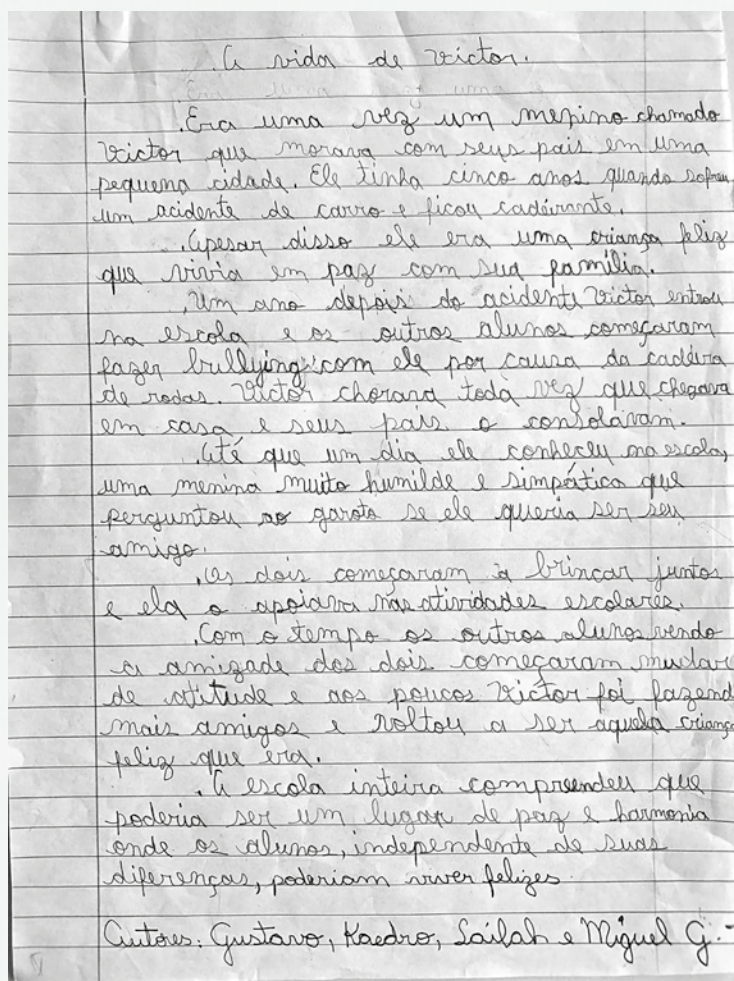 A vida de Victor.
.Era uma vez um menino chamado
Victor que morava com seus pais em uma
pequena cidade. Ele tinha cinco anos quando sofreu
um acidente de carro e ficou cadeirante.
.Apesar disso ele era uma criança feliz
que vivia em paz com sua família.
.Um ano depois do acidente Victor entrou
na escola e os outros alunos começaram
fazer bullying com ele por causa da cadeira
de rodas. Victor chorava toda vez que chegava
em casa e seus pais o consolavam.
.Até que um dia ele conheceu na escola,
uma menina muito humilde e simpática que
perguntou ao garoto se ele queria ser seu
amigo.
.Os dois começaram à brincar juntos
e ela o apoiava nas atividades escolares.
.Com o tempo os outros alunos vendo
a amizade dos dois começaram mudar
de atitude e aos poucos Victor foi fazend
mais amigos e voltou a ser aquela criança
feliz que era.
.A escola inteira compreendeu que
poderia ser um lugar de paz e harmonia
onde os alunos, independente de suas
diferenças, poderiam viver felizes.
Autores: Gustavo, Kaedro, Lailah e Miguel G.-